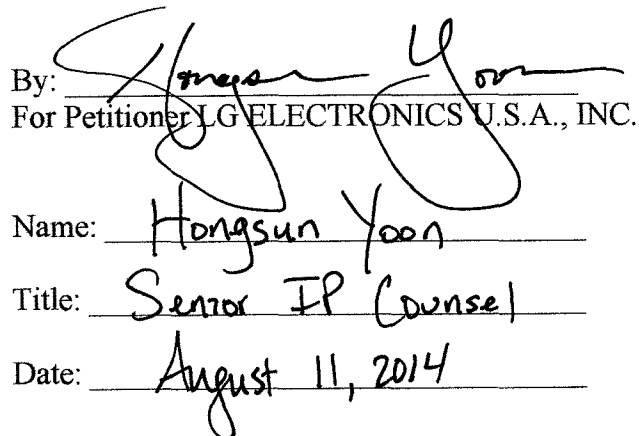 By: Hongsun Yoon
For Petitioner LG ELECTRONICS U.S.A., INC.
Name: Hongsun Yoon
Title: Senior IP Counsel
Date: August 11, 2014